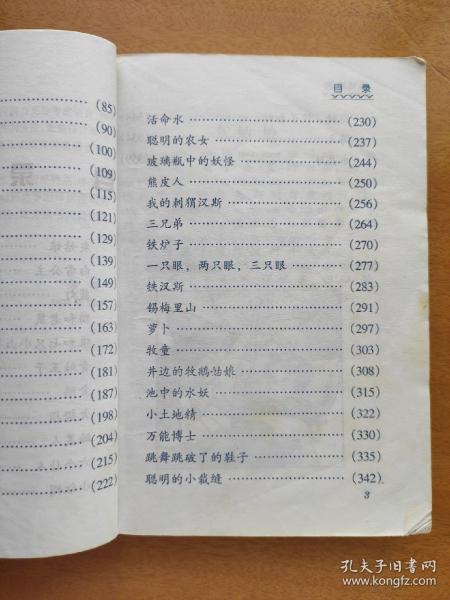 (85)
(90)
(100)
(109)
(115)
(121)
(129)
(139)
(149)
(157)
(163)
(172)
(181)
(187)
(198)
(204)
(215)
(222)
目 录
活命水 (230)
聪明的农女 (237)
玻璃瓶中的妖怪 (244)
熊皮人 (250)
我的刺猬汉斯 (256)
三兄弟 (264)
铁炉子 (270)
一只眼，两只眼，三只眼 (277)
铁汉斯 (283)
锡梅里山 (291)
萝卜 (297)
牧童 (303)
井边的牧鹅姑娘 (308)
池中的水妖 (315)
小土地精 (322)
万能博士 (330)
跳舞跳破了的鞋子 (335)
聪明的小裁缝 (342)
3
孔夫子旧书网
www.kongfz.com